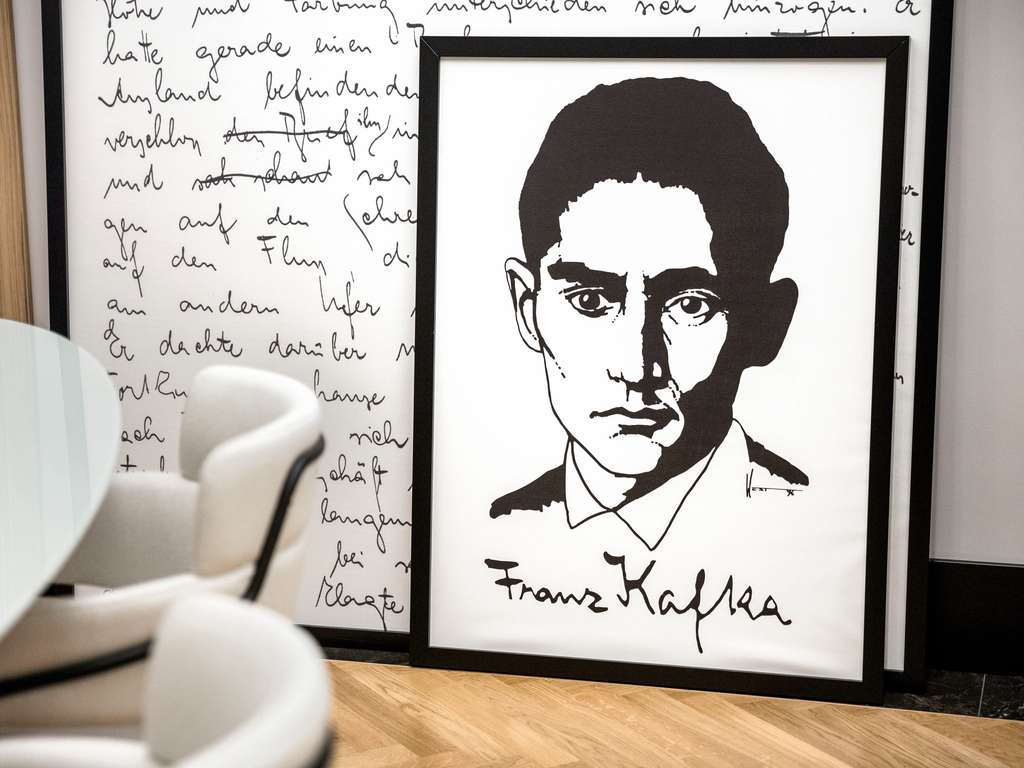 Höhe und Färbung unterschieden sich hinzogen. Er
hatte gerade einen
Ausland befindenden
verschloss den Brief ihn in
und sah schaut sah
gen auf den Schre
auf den Fluss, di
am andern Ufer
Er dachte darüber
nach sich
schäft
langem
bei
klagte
Franz Kafka